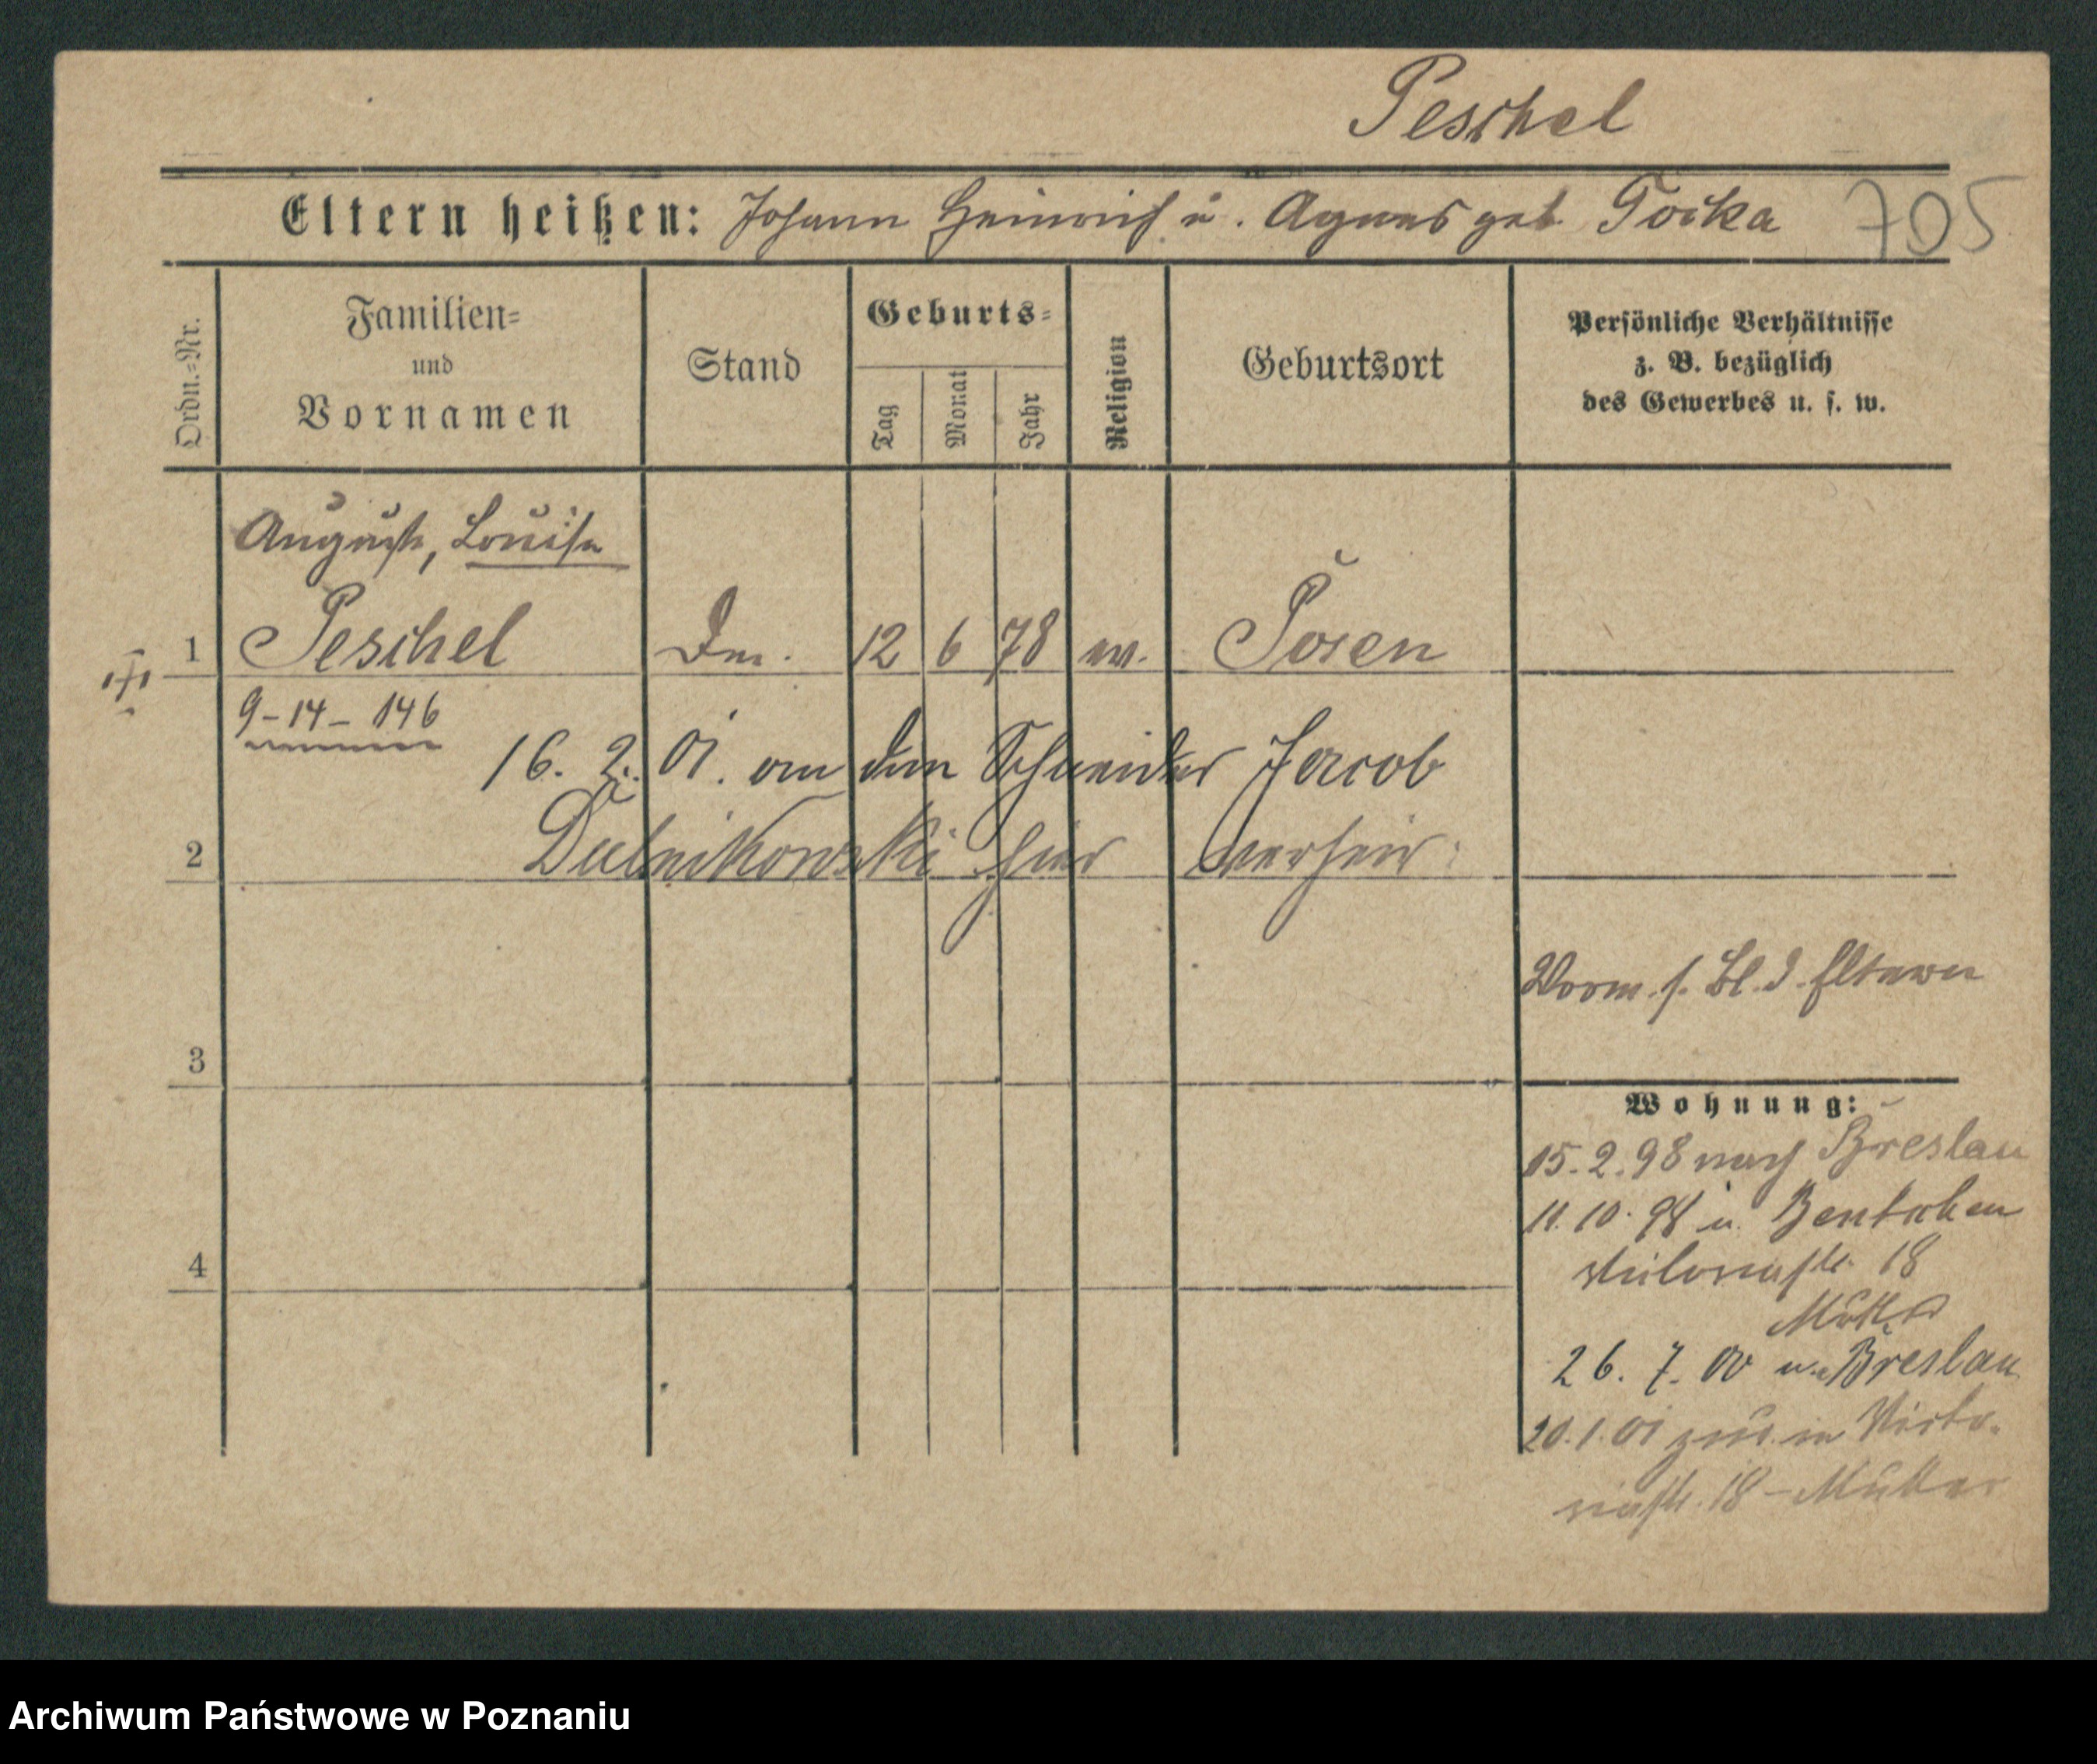 Peschel
Eltern heißen: Johann Heinrich u. Agnes geb. Tocka 705
Ordn.=Nr.
Familien=
und
Vornamen
Stand
Geburts=
Tag
Monat
Jahr
Religion
Geburtsort
Persönliche Verhältnisse
z. B. bezüglich
des Gewerbes u. s. w.
Auguste, Louise
1 Peschel 12 6 78 ev. Posen
9-14-146
16. 2. 01. an den Schneider Jacob
2 hier verheir.
Vorm. s. Bl. d. Eltern
3
Wohnung:
15.2.98 nach Breslau
11.10.98 v. Bentschen
4
18
Mutter
26. 7. 00 n. Breslau
20.1.01 zur. in Victo-
riastr. 18 - Mutter
Archiwum Państwowe w Poznaniu